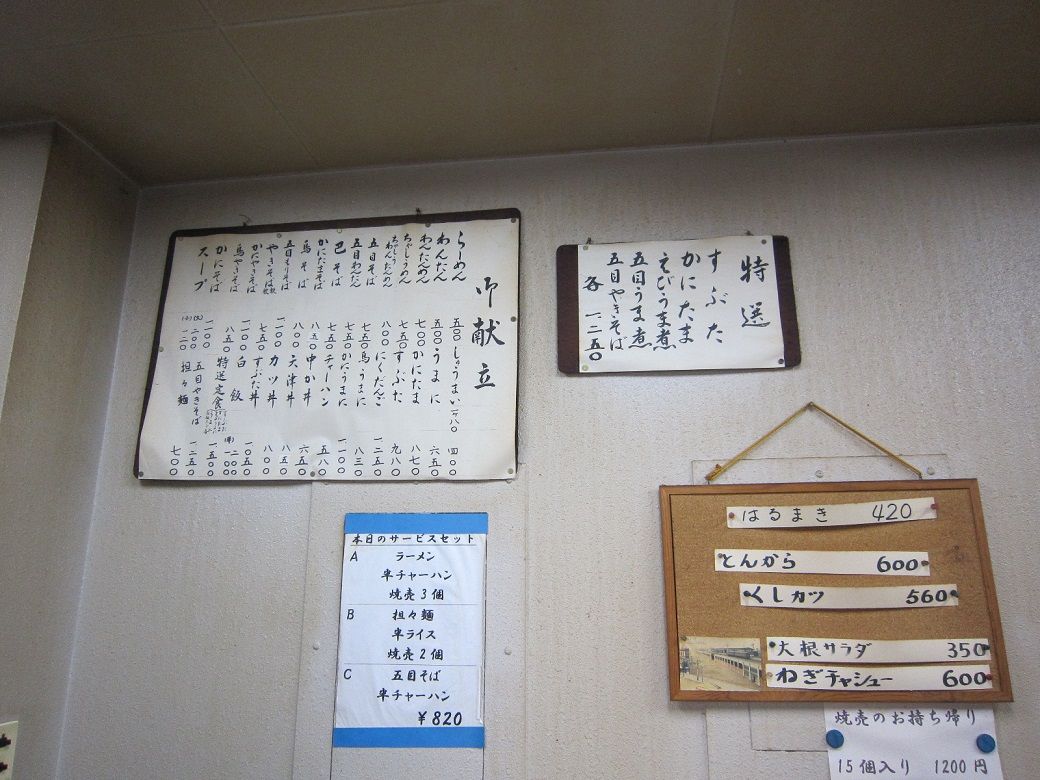 御献立
らーめん 五〇〇
わんたん 五〇〇
わんたんめん 七五〇
ちゃしうめん 七五〇
ちゃしうわんたんめん 八〇〇
五目そば 七五〇
五目わんたん 七五〇
巴そば 七五〇
かにたまそば 八五〇
馬そば 八〇〇
五目もりそば
やきそば 七五〇
かにやきそば
馬やきそば 八五〇
かにそば
スープ (大)二〇〇 (小)一二〇
しゅうまい 一ケ八〇 四〇〇
うまに 六五〇
かにたま 八七〇
すぶた 九八〇
にくだんご 一二五〇
馬うまに 八三〇
かにうまに 一一〇〇
チャーハン 五八〇
中か丼 六五〇
天津丼 八五〇
カツ丼 八〇〇
すぶた丼 一〇五〇
白飯 二〇〇 (半)一〇〇
特選定食 一五〇〇
五目やきそば 一二五〇
担々麺 七〇〇
特選
すぶた
かにたま
えびうま煮
五目うま煮
五目やきそば
各 一二五〇
本日のサービスセット
A ラーメン
半チャーハン
焼売3個
B 担々麺
半ライス
焼売2個
C 五目そば
半チャーハン
¥820
はるまき 420
とんから 600
くしカツ 560
大根サラダ 350
ねぎチャシュー 600
焼売のお持ち帰り
15個入り 1200円